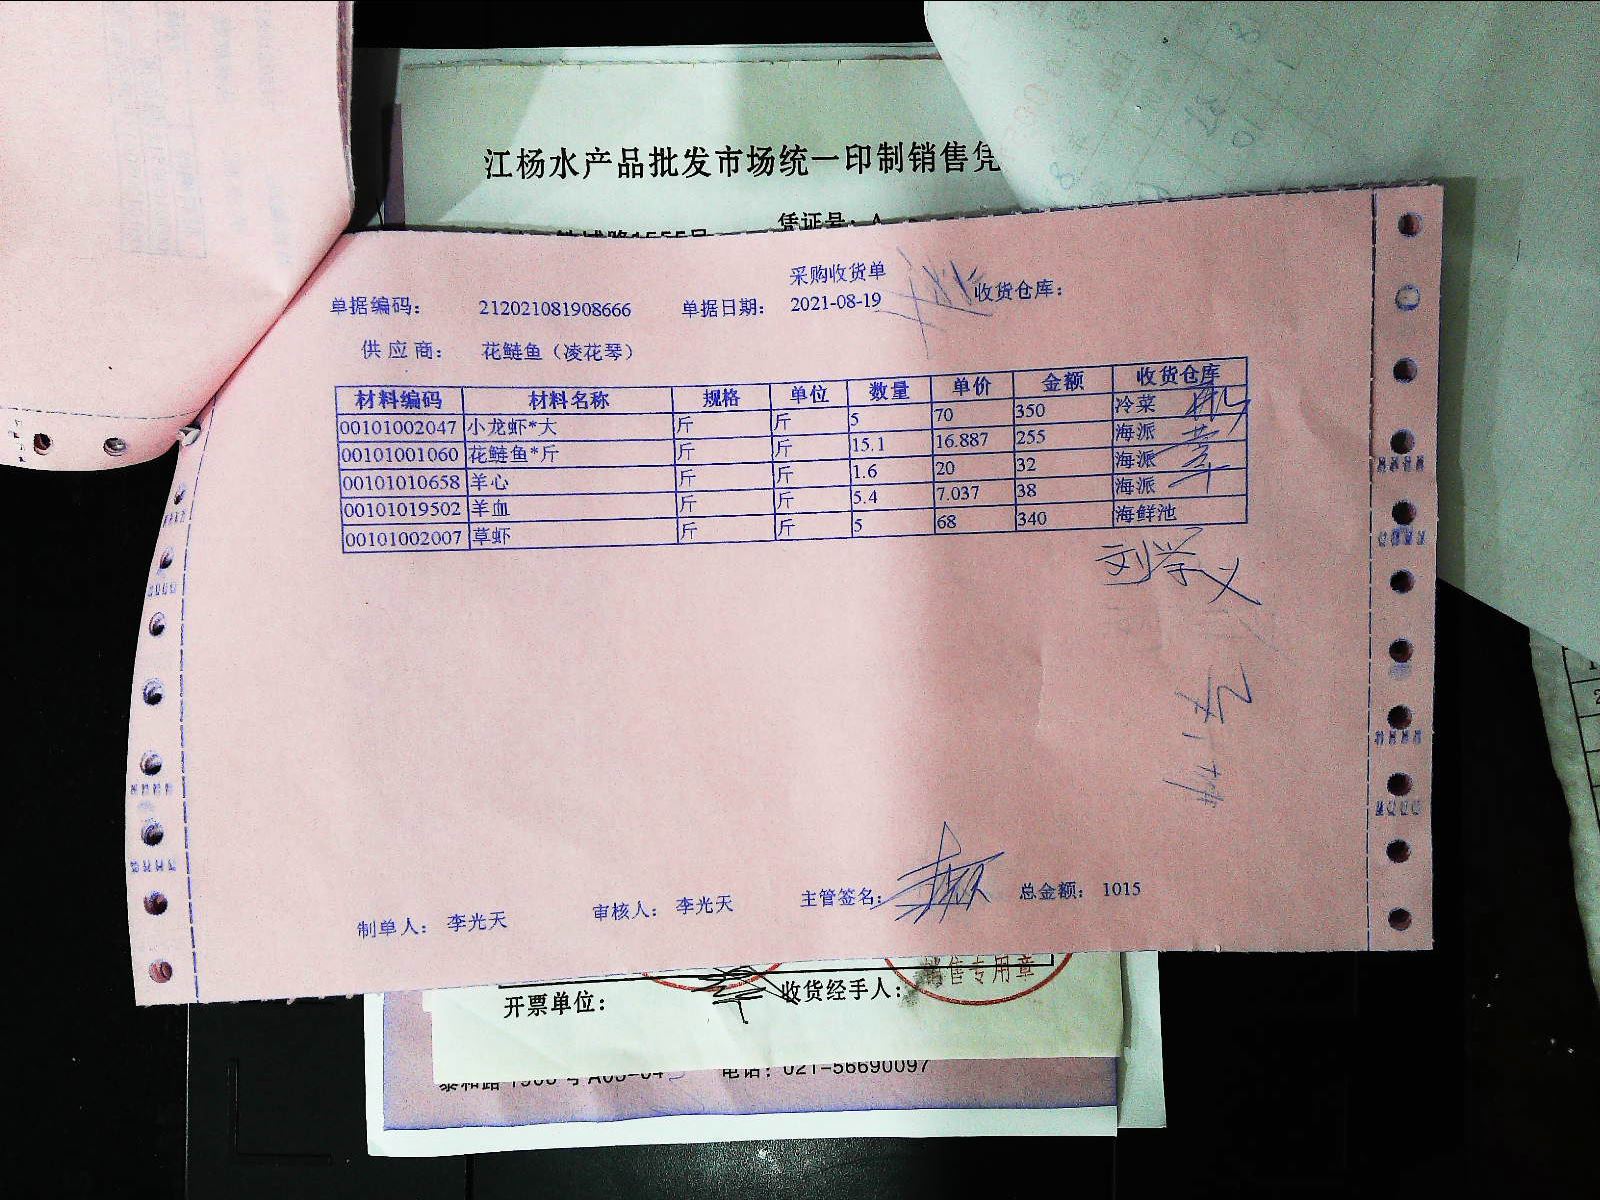 江杨水产品批发市场统一印制销售凭
凭证号：A
采购收货单
单据编码： 212021081908666 单据日期： 2021-08-19 收货仓库：
供应商： 花鲢鱼（凌花琴）
材料编码 材料名称 规格 单位 数量 单价 金额 收货仓库
00101002047 小龙虾*大 斤 斤 5 70 350 冷菜
00101001060 花鲢鱼*斤 斤 斤 15.1 16.887 255 海派
00101010658 羊心 斤 斤 1.6 20 32 海派
00101019502 羊血 斤 斤 5.4 7.037 38 海派
00101002007 草虾 斤 斤 5 68 340 海鲜池
刘学义
制单人： 李光天 审核人： 李光天 主管签名： 总金额： 1015
销售专用章
开票单位： 收货经手人：
电话：021-56690097